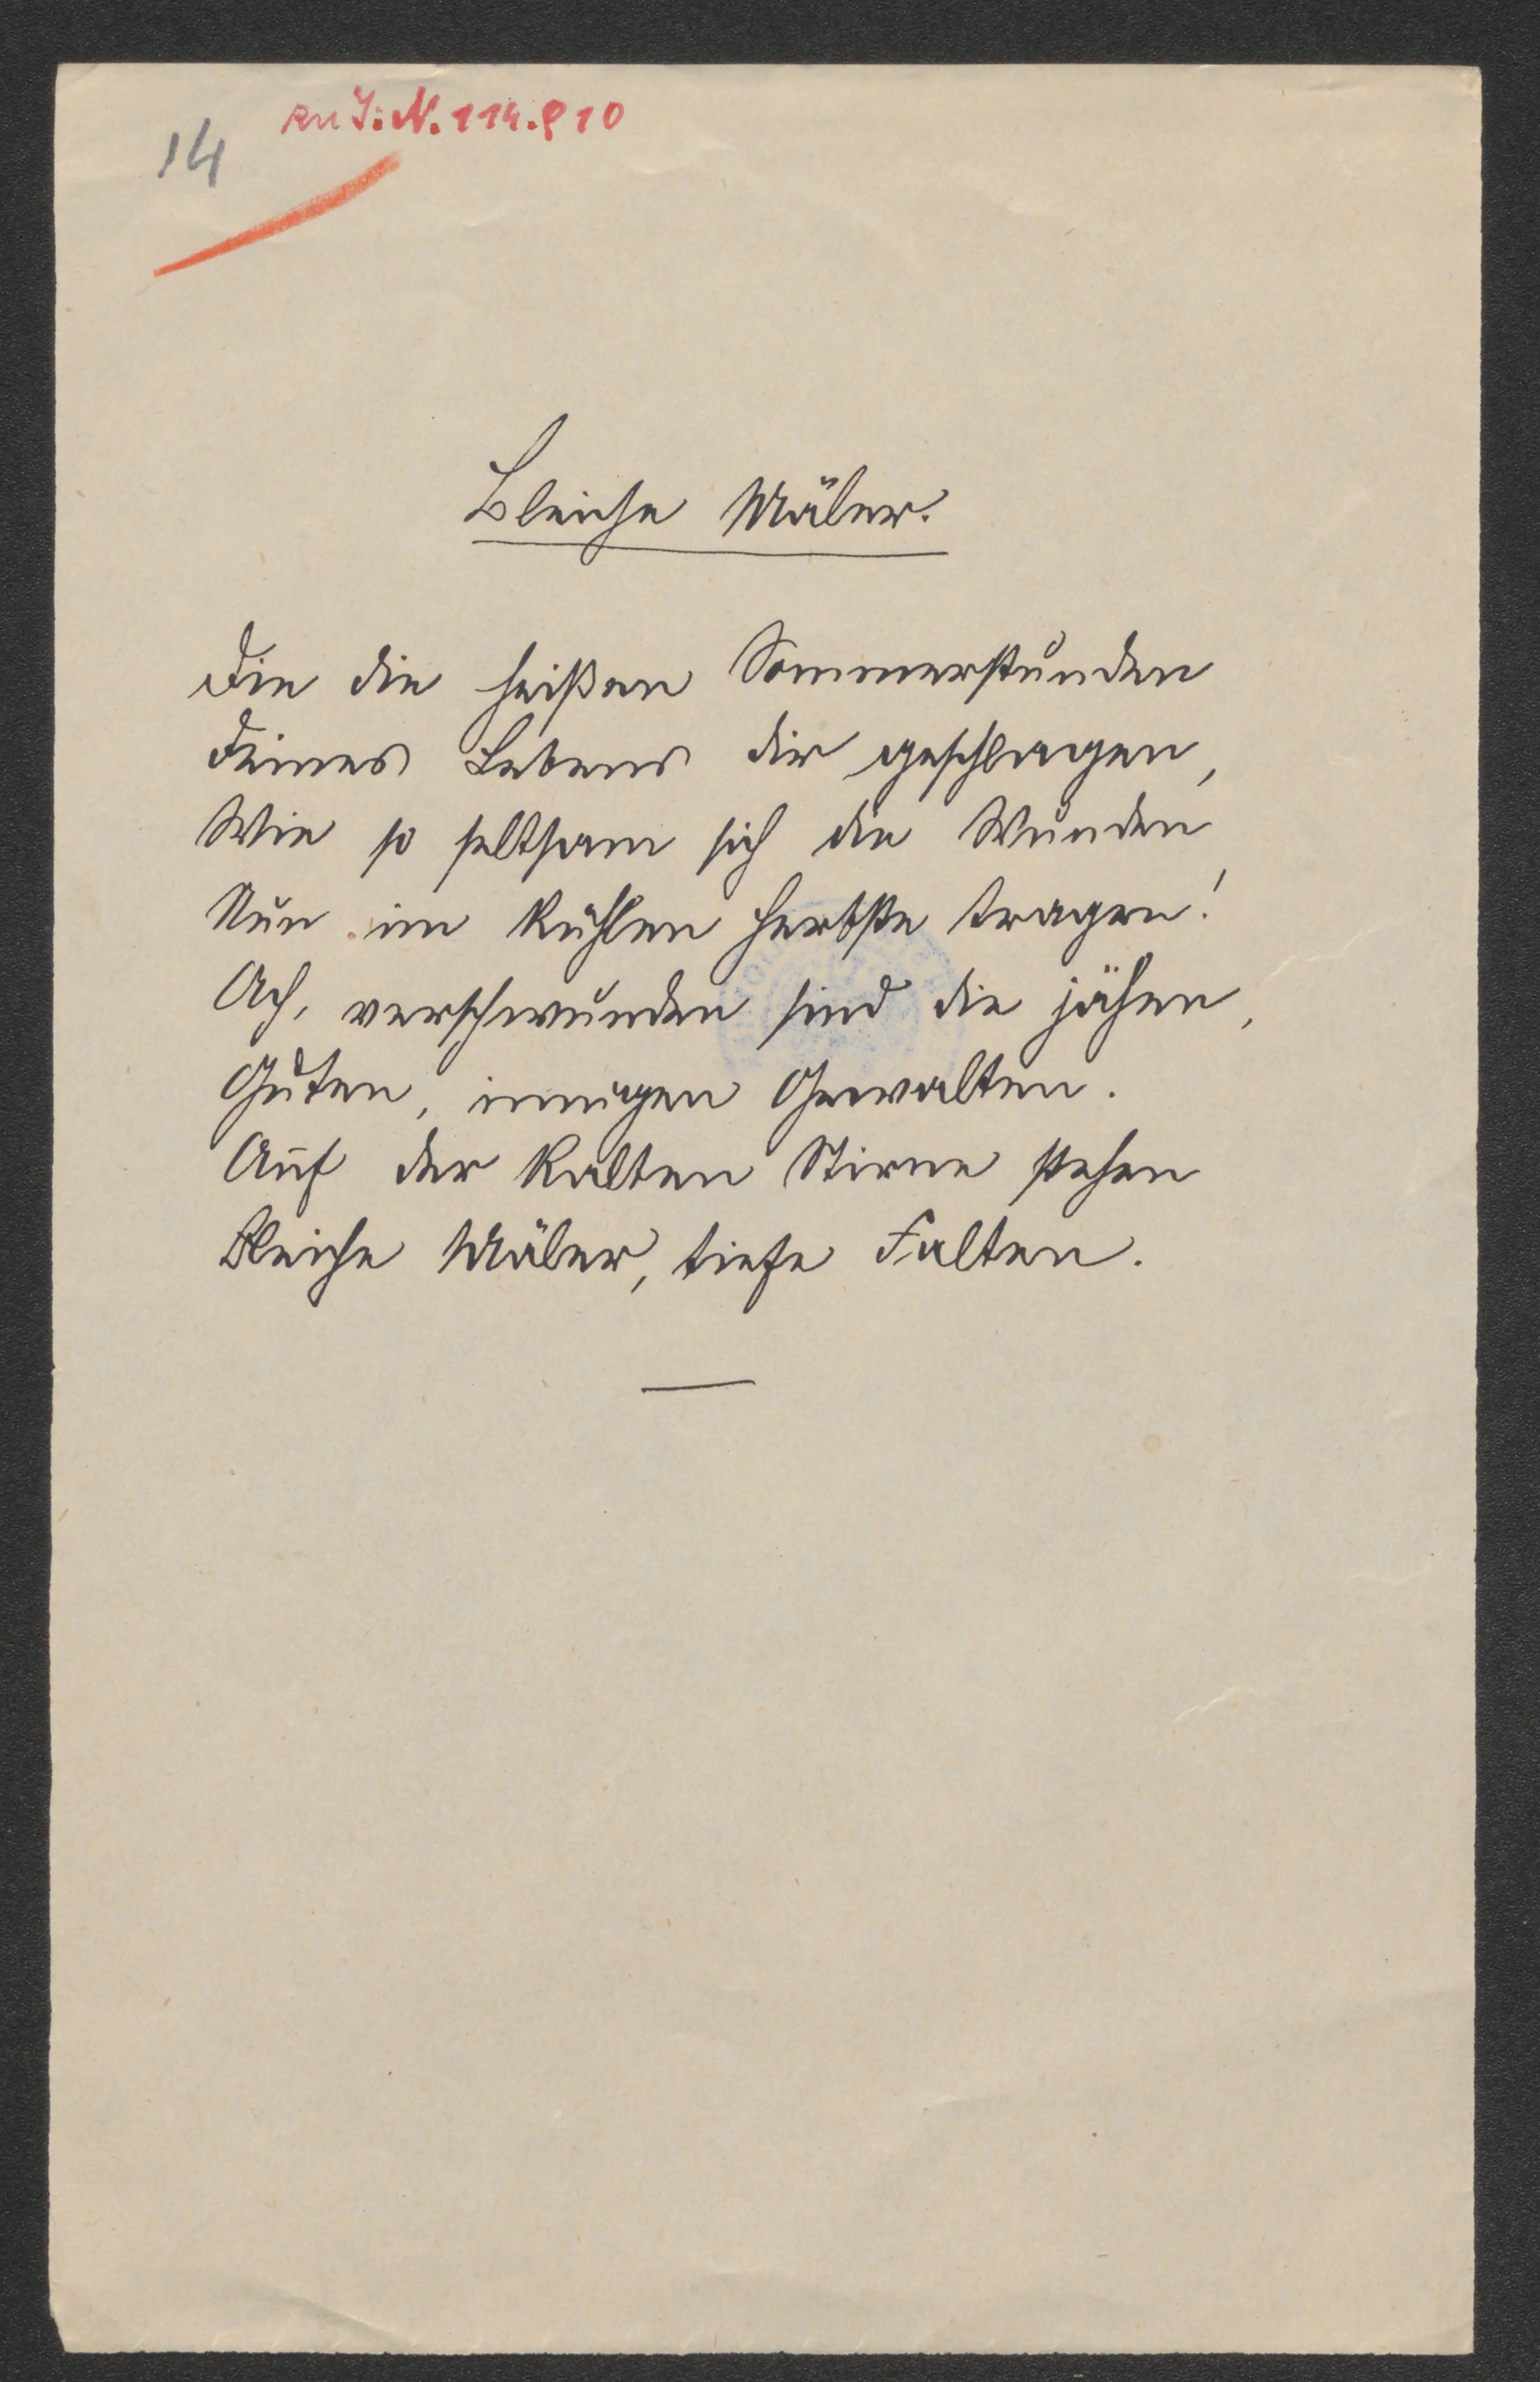 14
zu I. N. 114.810
Bleiche Mäler.
Die die heißen Sommerstunden
Deines Lebens dir geschlagen,
Wie so seltsam sich die Wunden
Nun im kühlen Herbste tragen!
Ach, verschwunden sind die jähen,
Guten, innigen Gewalten.
Auf der kalten Stirne stehen
Bleiche Mäler, tiefe Falten.